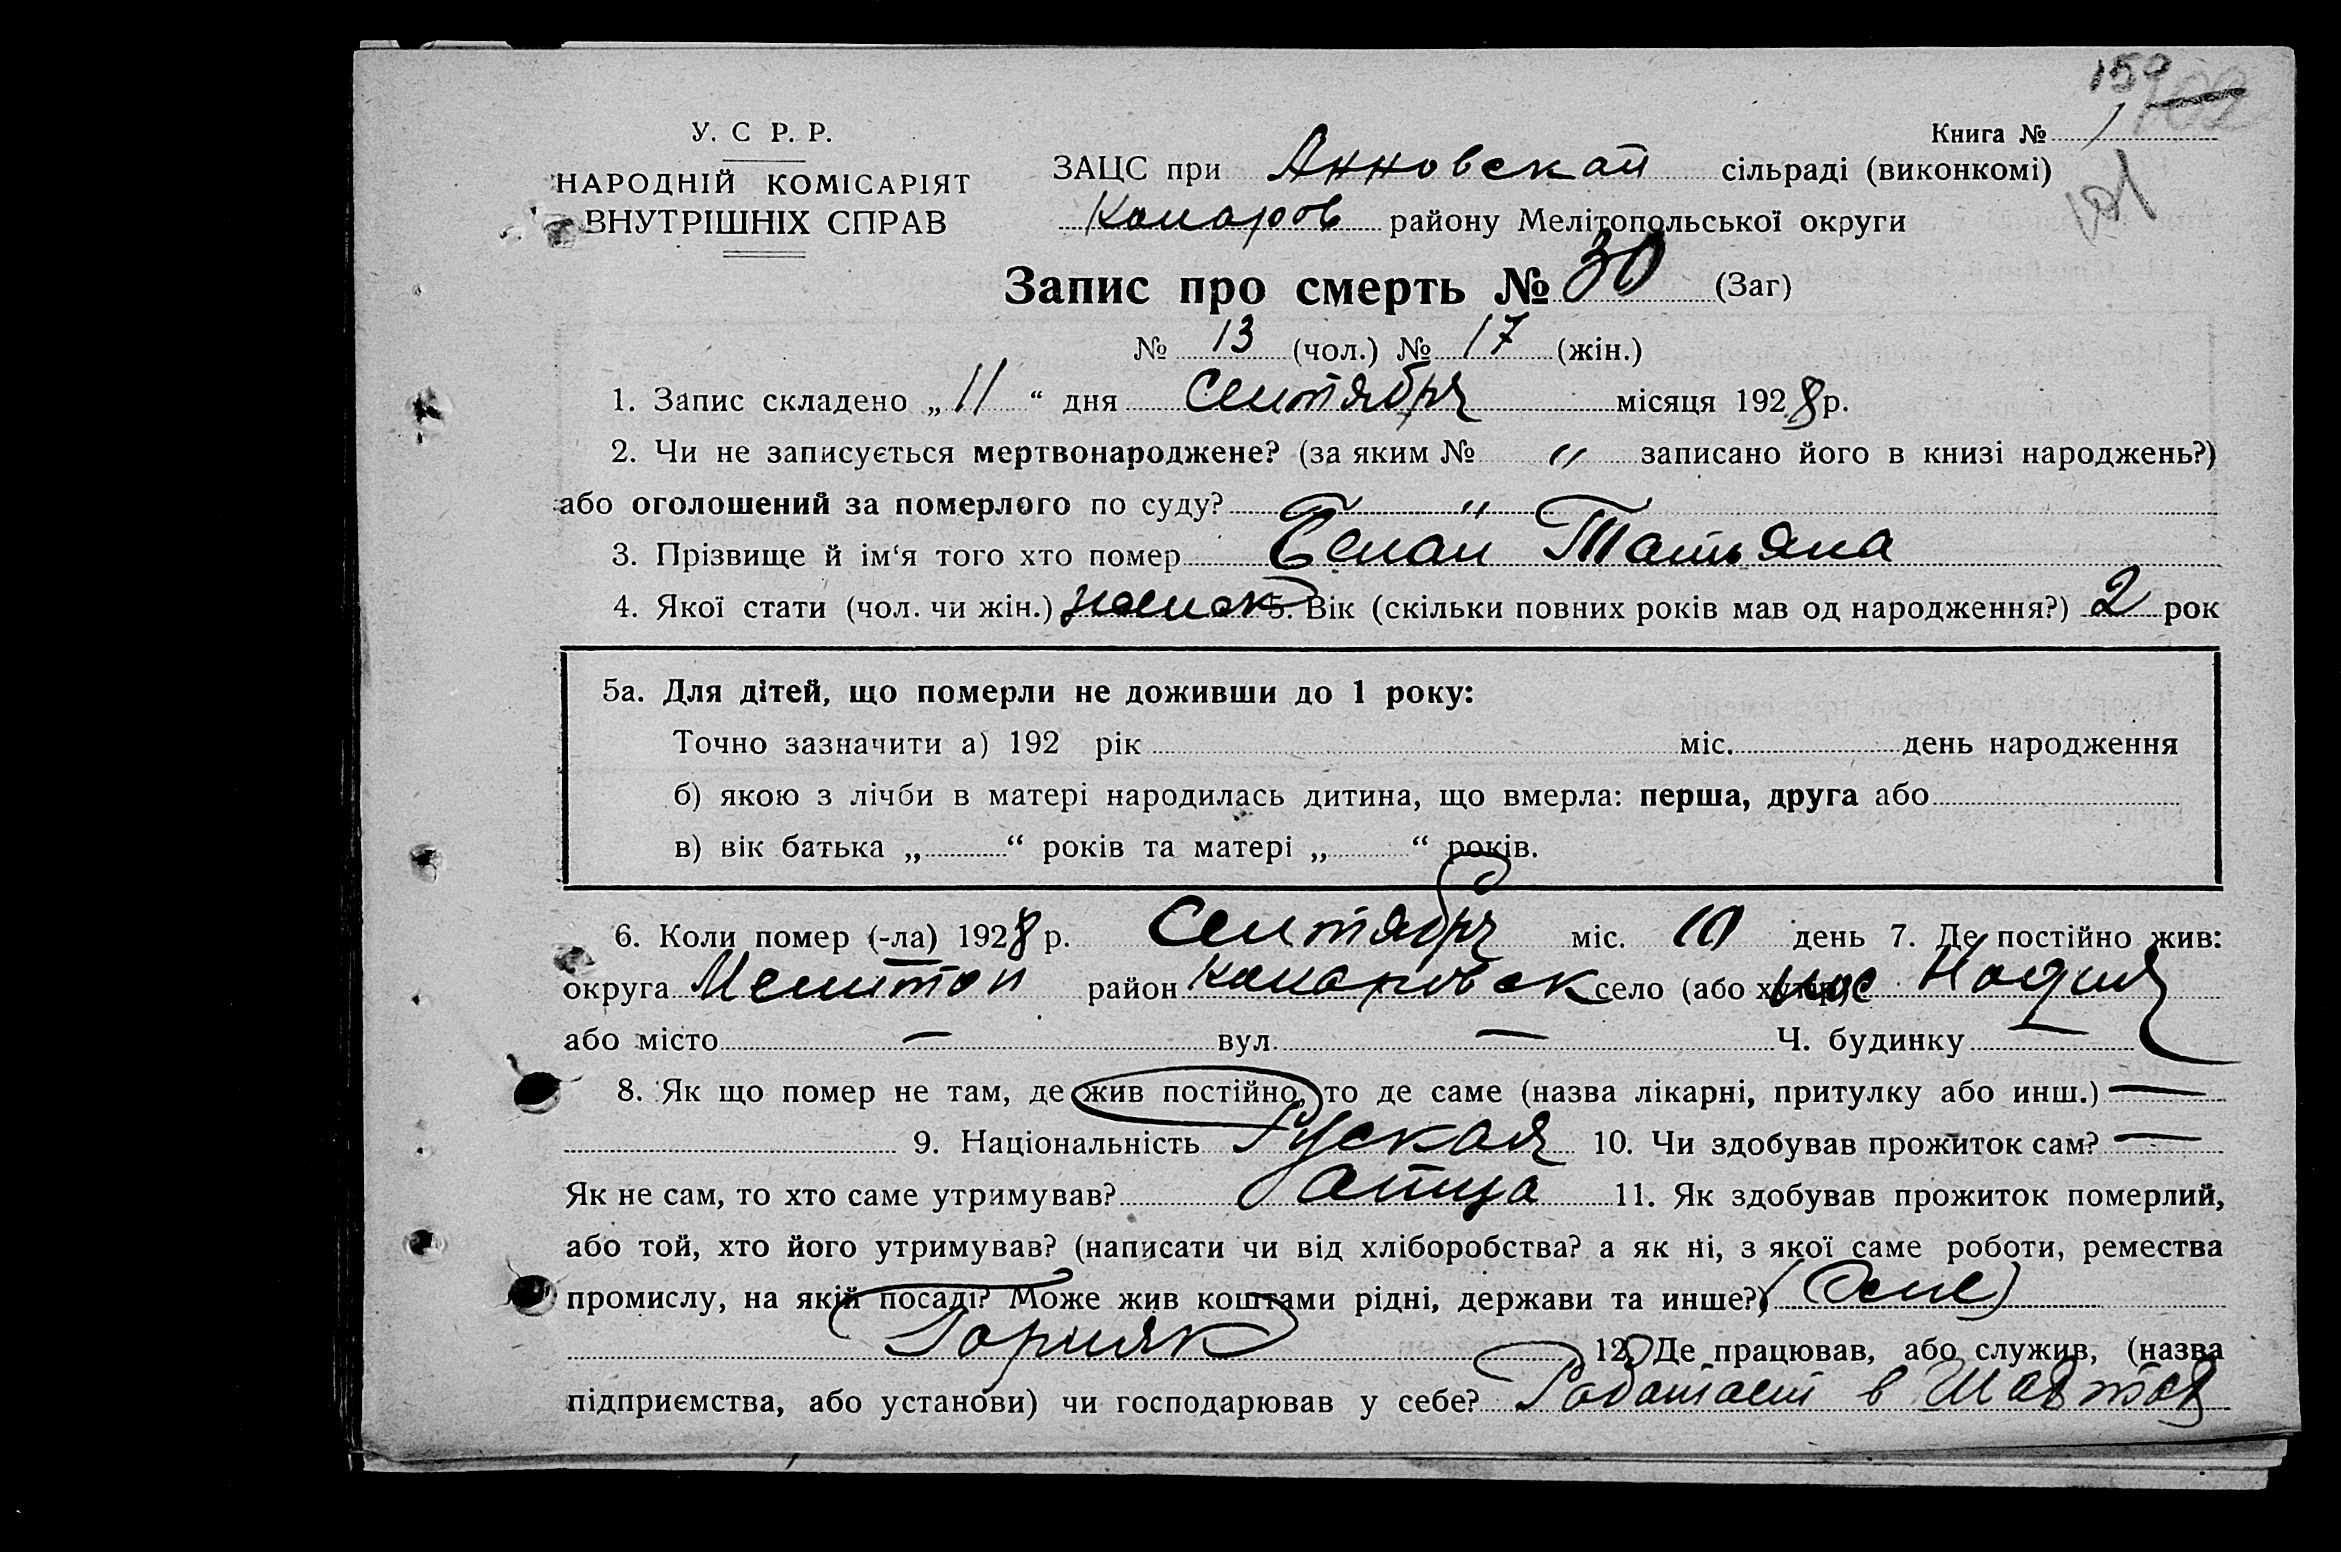 150
Книга № 1
У. С Р. Р.
НАРОДНІЙ КОМІСАРІЯТ
ВНУТРІШНІХ СПРАВ
ЗАЦС при Анновскай сільраді (виконкомі)
району Мелітопольської округи
Запис про смерть № 30 (Заг)
№ 13 (чол.) № 17 (жін.)
1. Запис складено „ 11 “ дня Сентября місяця 1928 р.
2. Чи не записується мертвонароджене? (за яким № " записано його в книзі народжень?)
або оголошений за померлого по суду? "
3. Прізвище й ім‘я того хто помер Татьяна
4. Якої стати (чол. чи жін.) 5. Вік (скільки повних років мав од народження?) 2 рок
5а. Для дітей, що померли не доживши до 1 року:
Точно зазначити а) 192 рік міс. день народження
б) якою з лічби в матері народилась дитина, що вмерла: перша, друга або
в) вік батька „ “ років та матері „ “ років.
6. Коли помер (-ла) 1928 р. Сентября міс. 10 день 7. Де постійно жив:
округа Мелитоп район село (або хутір)
або місто — вул. — Ч. будинку —
8. Як що помер не там, де жив постійно, то де саме (назва лікарні, притулку або инш.) —
9. Національність Руская 10. Чи здобував прожиток сам? —
Як не сам, то хто саме утримував? 11. Як здобував прожиток померлий,
або той, хто його утримував? (написати чи від хліборобства? а як ні, з якої саме роботи, ремества
промислу, на якій посаді? Може жив коштами рідні, держави та инше?)
Горняк 12. Де працював, або служив, (назва
підприємства, або установи) чи господарював у себе? Работает в Шахтах